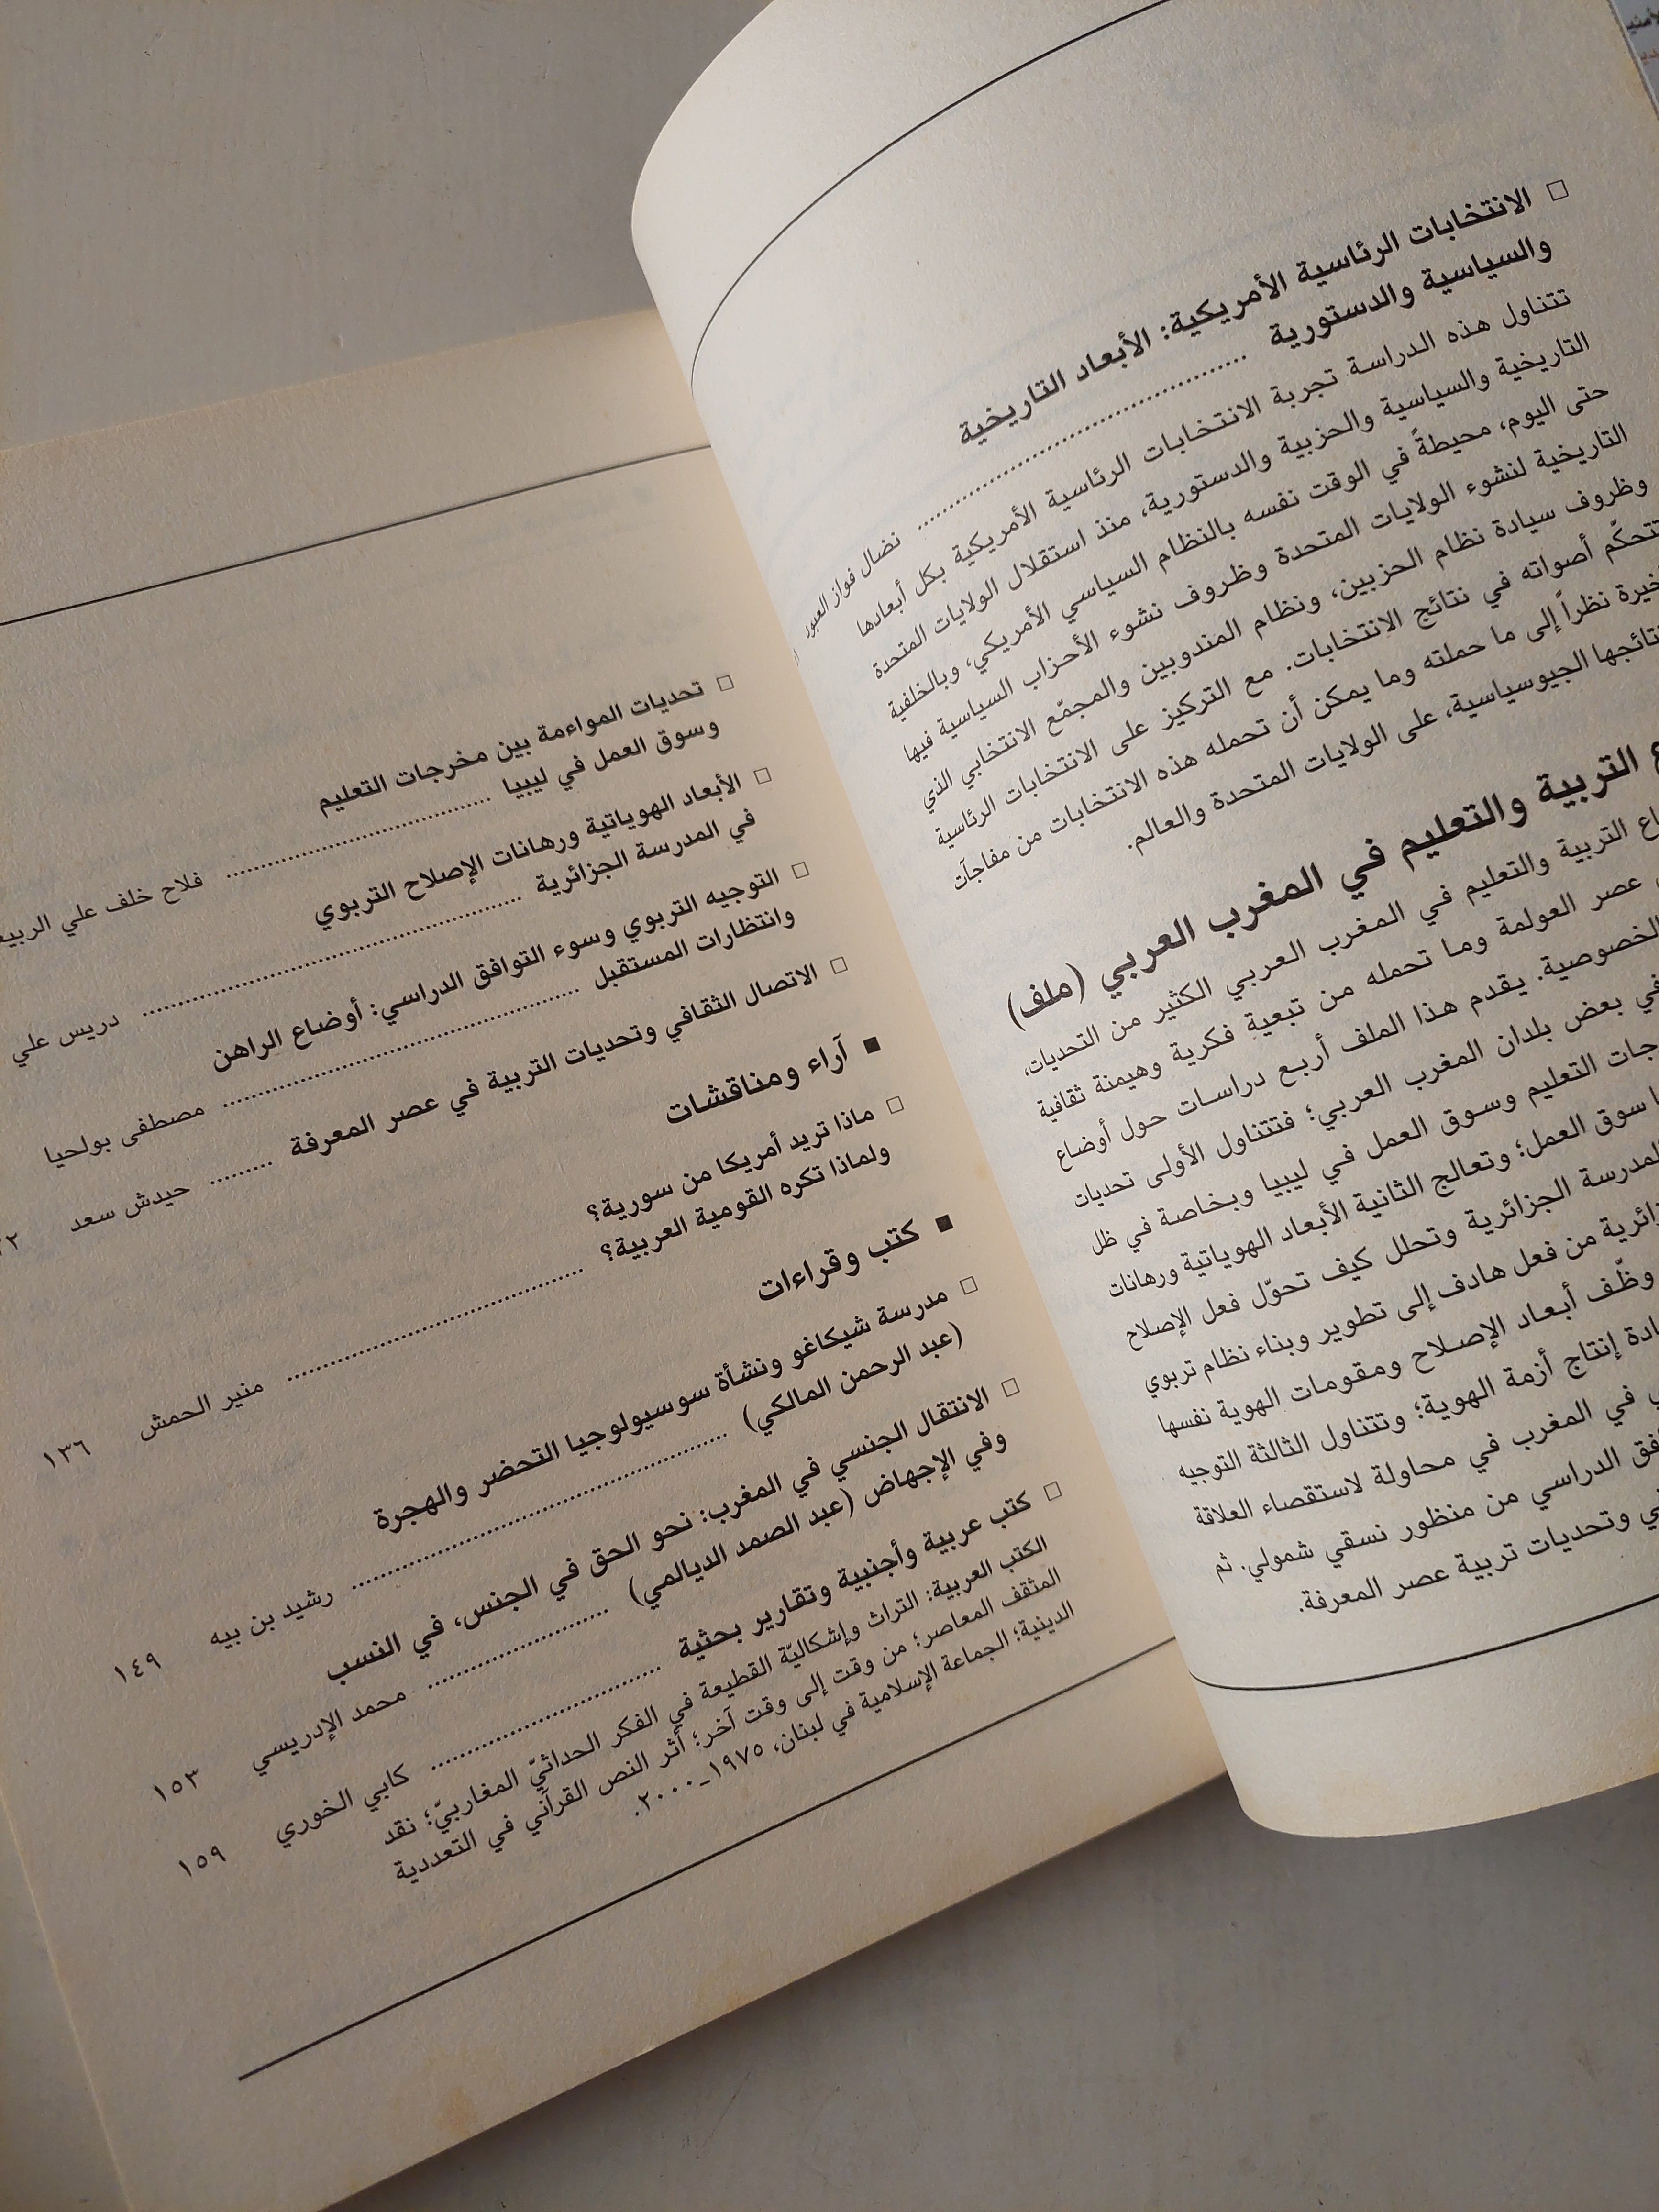 □ الانتخابات الرئاسية الأمريكية: الأبعاد التاريخية
والسياسية والدستورية ........ نضال فواز العبور
تتناول هذه الدراسة تجربة الانتخابات الرئاسية الأمريكية بكل أبعادها
التاريخية والسياسية والحزبية والدستورية، منذ استقلال الولايات المتحدة
حتى اليوم، محيطةً في الوقت نفسه بالنظام السياسي الأمريكي، وبالخلفية
التاريخية لنشوء الولايات المتحدة وظروف نشوء الأحزاب السياسية فيها
وظروف سيادة نظام الحزبين، ونظام المندوبين والمجمّع الانتخابي الذي
تتحكّم أصواته في نتائج الانتخابات. مع التركيز على الانتخابات الرئاسية
نظراً إلى ما حملته وما يمكن أن تحمله هذه الانتخابات من مفاجآت
الجيوسياسية، على الولايات المتحدة والعالم.
التربية والتعليم في المغرب العربي (ملف)
التربية والتعليم في المغرب العربي الكثير من التحديات،
عصر العولمة وما تحمله من تبعية فكرية وهيمنة ثقافية
الخصوصية. يقدم هذا الملف أربع دراسات حول أوضاع
في بعض بلدان المغرب العربي؛ فتتناول الأولى تحديات
التعليم وسوق العمل في ليبيا وبخاصة في ظل
سوق العمل؛ وتعالج الثانية الأبعاد الهوياتية ورهانات
المدرسة الجزائرية وتحلل كيف تحوّل فعل الإصلاح
من فعل هادف إلى تطوير وبناء نظام تربوي
وظّف أبعاد الإصلاح ومقومات الهوية نفسها
إنتاج أزمة الهوية؛ وتتناول الثالثة التوجيه
في المغرب في محاولة لاستقصاء العلاقة
الدراسي من منظور نسقي شمولي. ثم
وتحديات تربية عصر المعرفة.
□ تحديات المواءمة بين مخرجات التعليم
وسوق العمل في ليبيا ........ فلاح خلف علي
□ الأبعاد الهوياتية ورهانات الإصلاح التربوي
في المدرسة الجزائرية ........ دريس علي
□ التوجيه التربوي وسوء التوافق الدراسي: أوضاع الراهن
وانتظارات المستقبل ........ مصطفى بولحيا
□ الاتصال الثقافي وتحديات التربية في عصر المعرفة ........ حيدش سعد
■ آراء ومناقشات
□ ماذا تريد أمريكا من سورية؟
ولماذا تكره القومية العربية؟ ........ منير الحمش ١٣٦
■ كتب وقراءات
□ مدرسة شيكاغو ونشأة سوسيولوجيا التحضر والهجرة
(عبد الرحمن المالكي) ........ رشيد بن بيه ١٤٩
□ الانتقال الجنسي في المغرب: نحو الحق في الجنس، في النسب
وفي الإجهاض (عبد الصمد الديالمي) ........ محمد الإدريسي ١٥٣
□ كتب عربية وأجنبية وتقارير بحثية ........ كابي الخوري ١٥٩
الكتب العربية: التراث وإشكاليّة القطيعة في الفكر الحداثيّ المغاربيّ؛ نقد
المثقف المعاصر؛ من وقت إلى وقت آخر؛ أثر النص القرآني في التعددية
الدينية؛ الجماعة الإسلامية في لبنان، ١٩٧٥-٢٠٠٠.